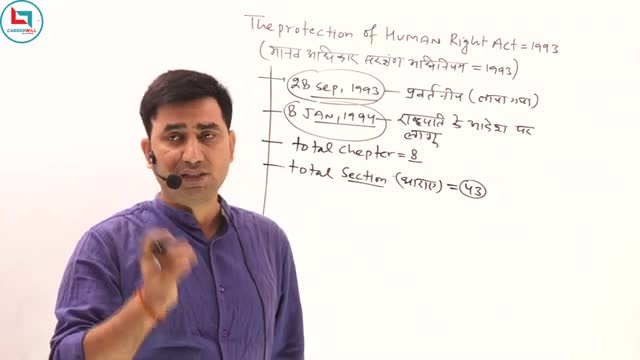 CAREERWILL
The protection of HUMAN Right Act = 1993
(मानव अधिकार संरक्षण अधिनियम = 1993)
28 Sep, 1993 — प्रवर्तनीय (लाया गया)
8 JAN, 1994 — राष्ट्रपति के आदेश पर
लागू
total Chepter = 8
total Section (धाराए) = 43